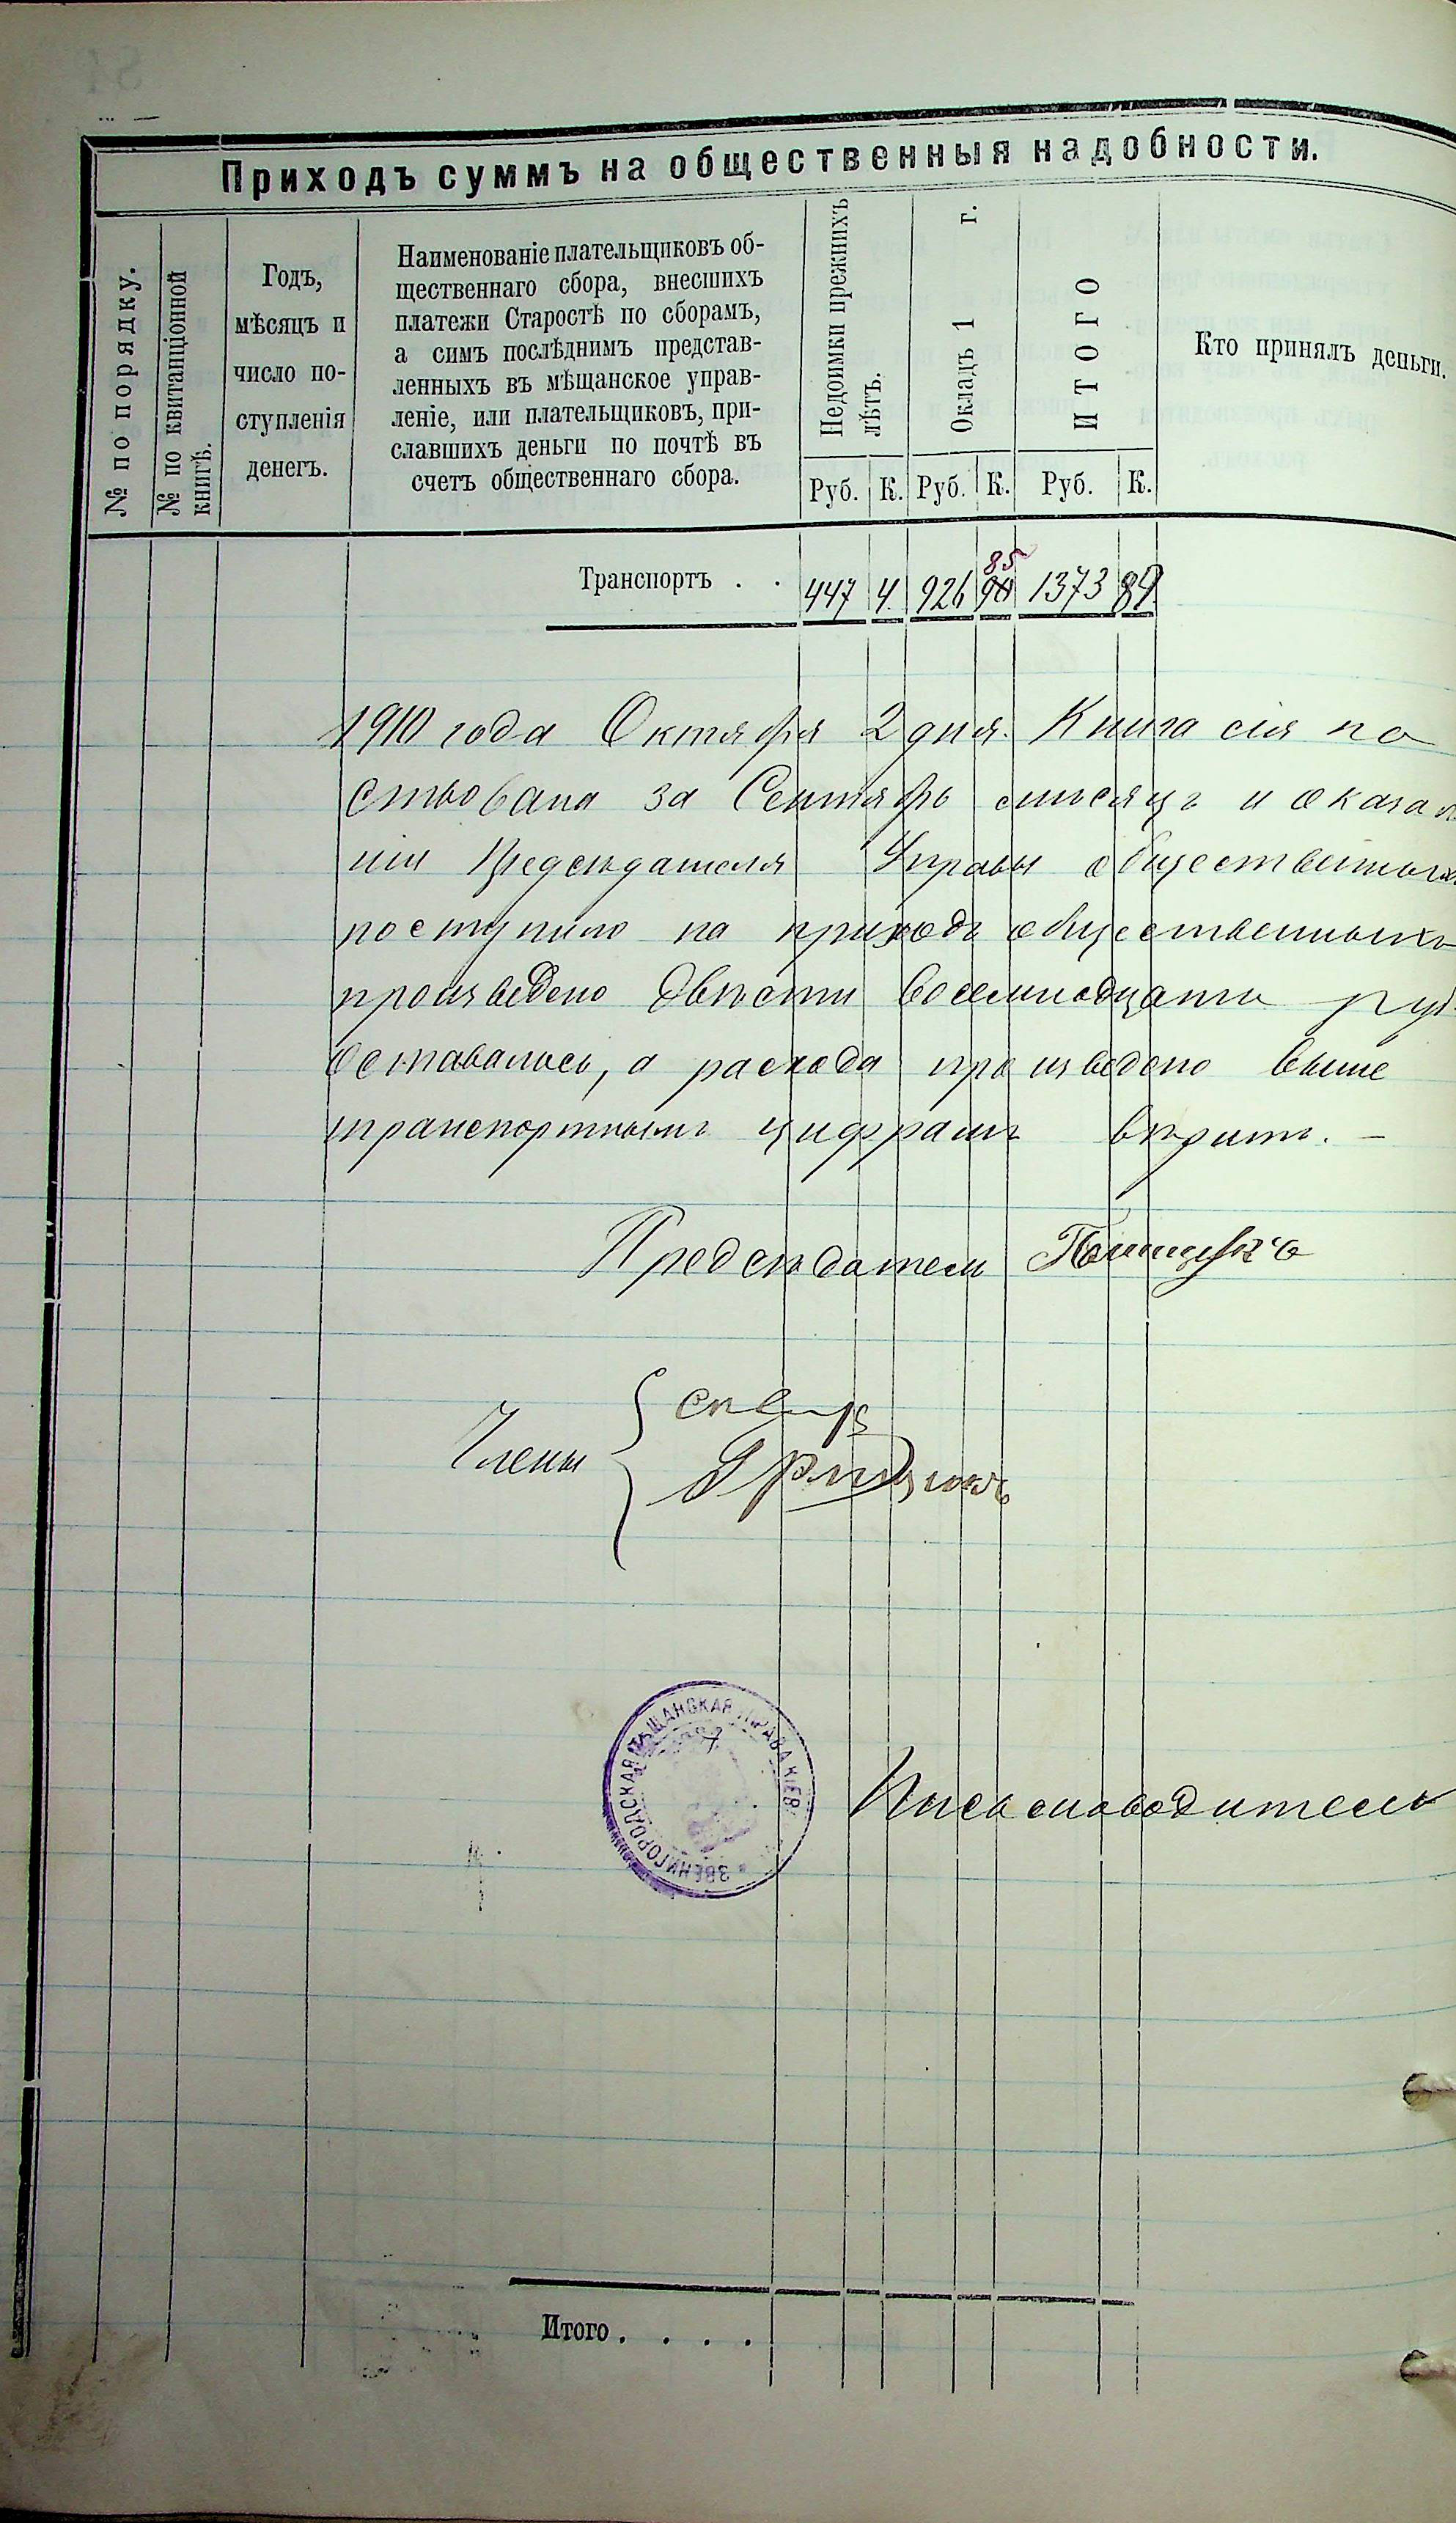 Приходъ суммъ на общественныя надобности.
№ по порядку.
№ по квитанціонной
книгѣ.
Годъ,
мѣсяцъ и
число по-
ступленія
денегъ.
Наименованіе плательщиковъ об-
щественнаго сбора, внесшихъ
платежи Старостѣ по сборамъ,
а симъ послѣднимъ представ-
ленныхъ въ мѣщанское управ-
леніе, или плательщиковъ, при-
славшихъ деньги по почтѣ въ
счетъ общественнаго сбора.
Недоимки прежнихъ
лѣтъ.
Окладъ 1 г.
ИТОГО
Кто принялъ деньги.
Руб. К. Руб. К. Руб. К.
85
Транспортъ . . 447 4 926 90 1373 89
1910 года Октября 2 дня. Книга сія по
ствована за Сентябрь мѣсяцъ и оказал
ніи Предсѣдателя Управы общественных
поступило на приходъ общественныхъ
произведено двѣсти восемнадцать руб
оставалось, а расхода произведено выше
транспортнымъ цифрамъ вѣрить. —
Предсѣдатель
Члены
ЗВЕНИГОРОДСКАЯ МѢЩАНСКАЯ УПРАВА КІЕВ
Письмоводитель
Итого . . . .